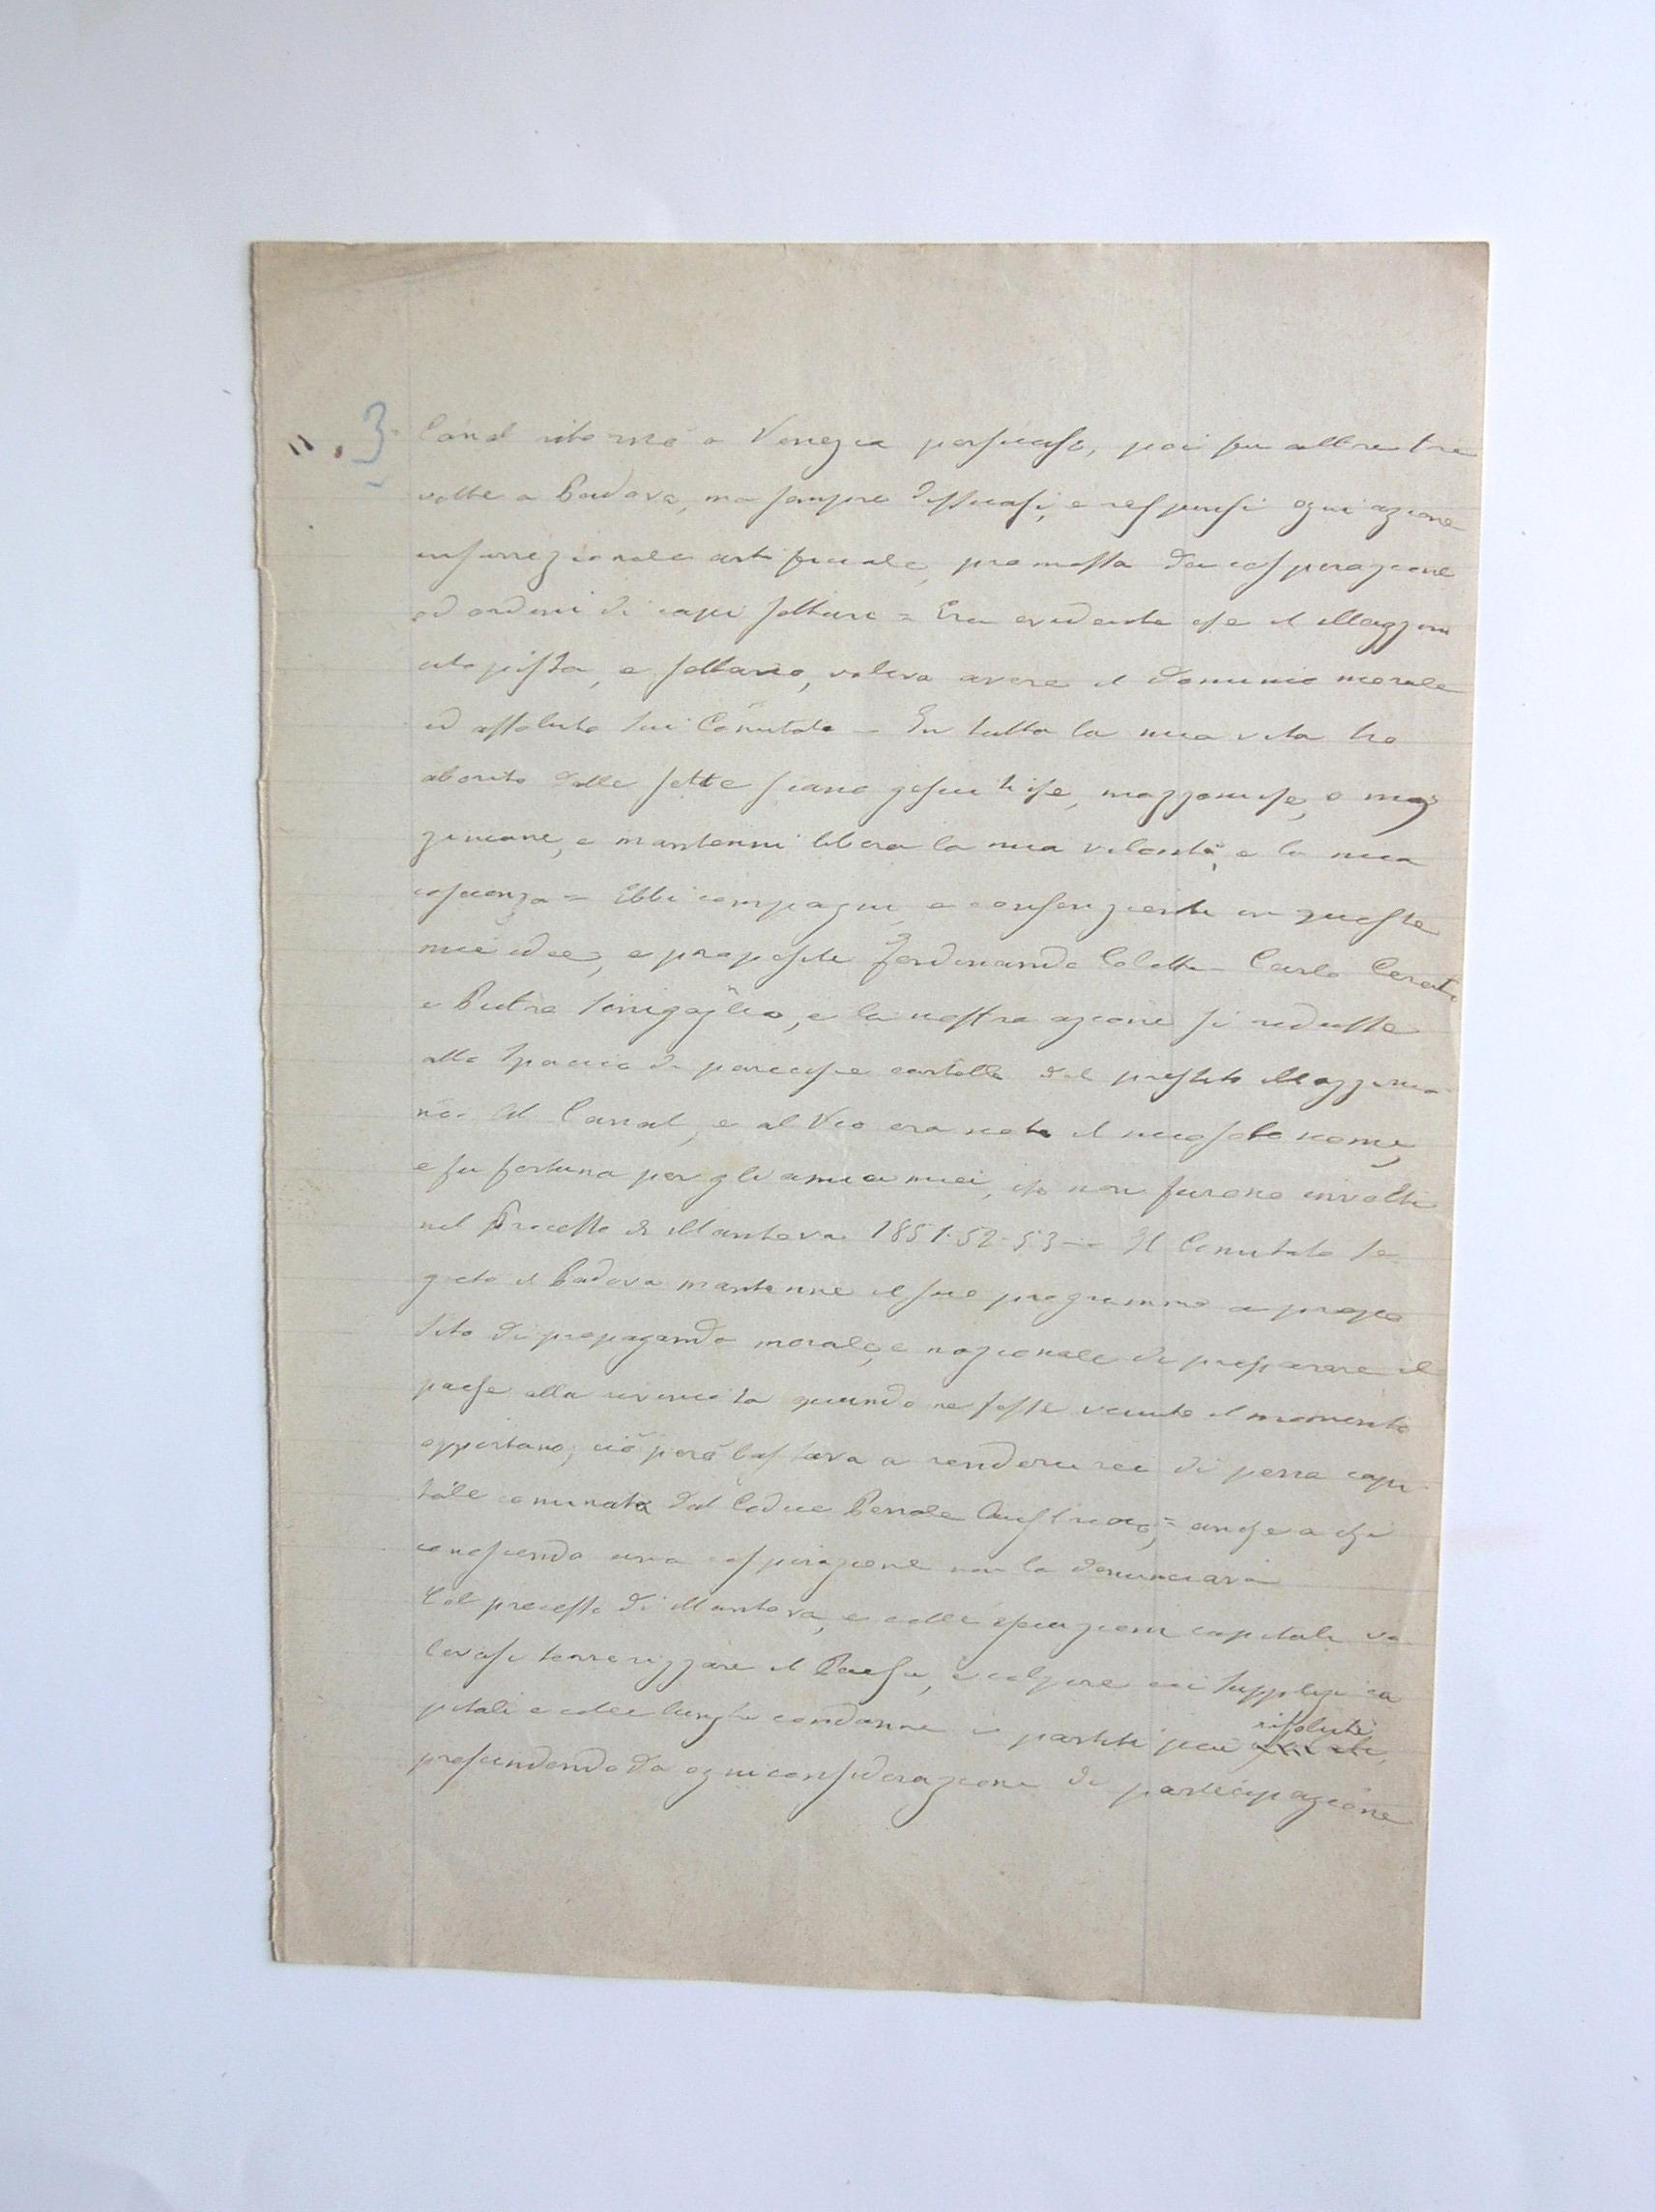 n. 3 Canal ritornò a Venezia persuaso, poi fu altre tre
volte a Padova, ma sempre dissuasi, e respinsi ogni azione
insurrezionale artificiale, promossa da cospirazione
od ordini di capi settari = Era evidente che il Mazzini
utopista, e settario, voleva avere il dominio morale
ed assoluto sui Comitati – In tutta la mia vita ho
aborito dalle sette siano gesuitiche, mazzoniche, o maz
ziniane, e mantenni libera la mia volontà, e la mia
coscienza = Ebbi compagni e consenzienti in queste
mie idee, e propositi Ferdinando Coletti – Carlo Cerato
e Pietro Sinigaglia, e la nostra azione si ridusse
allo spaccio di parecchie cartelle del prestito Mazzinia-
no. Al Canal, e al Vio era noto il mio solo nome,
e fu fortuna per gli amici miei, che non furono involti
nel Processo di Mantova 1851. 52-53 – Il Comitato se-
greto di Padova mantenne il suo programma e propo
sito di propaganda morale, e nazionale di preparare il
paese alla riscossa quando ne fosse venuto il momento
opportuno; ciò però bastava a renderci rei di pena capi-
tale cominata dal Codice Penale Austriaco, = anche a chi
conoscendo una cospirazione non la denunciava
Col processo di Mantova, e colle esecuzioni capitali vo-
levasi terrorizzare il Paese, e colpire coi supplizi ca
pitali e colle lunghe condanne i partiti più risoluti
prescindendo da ogni considerazione di partecipazione